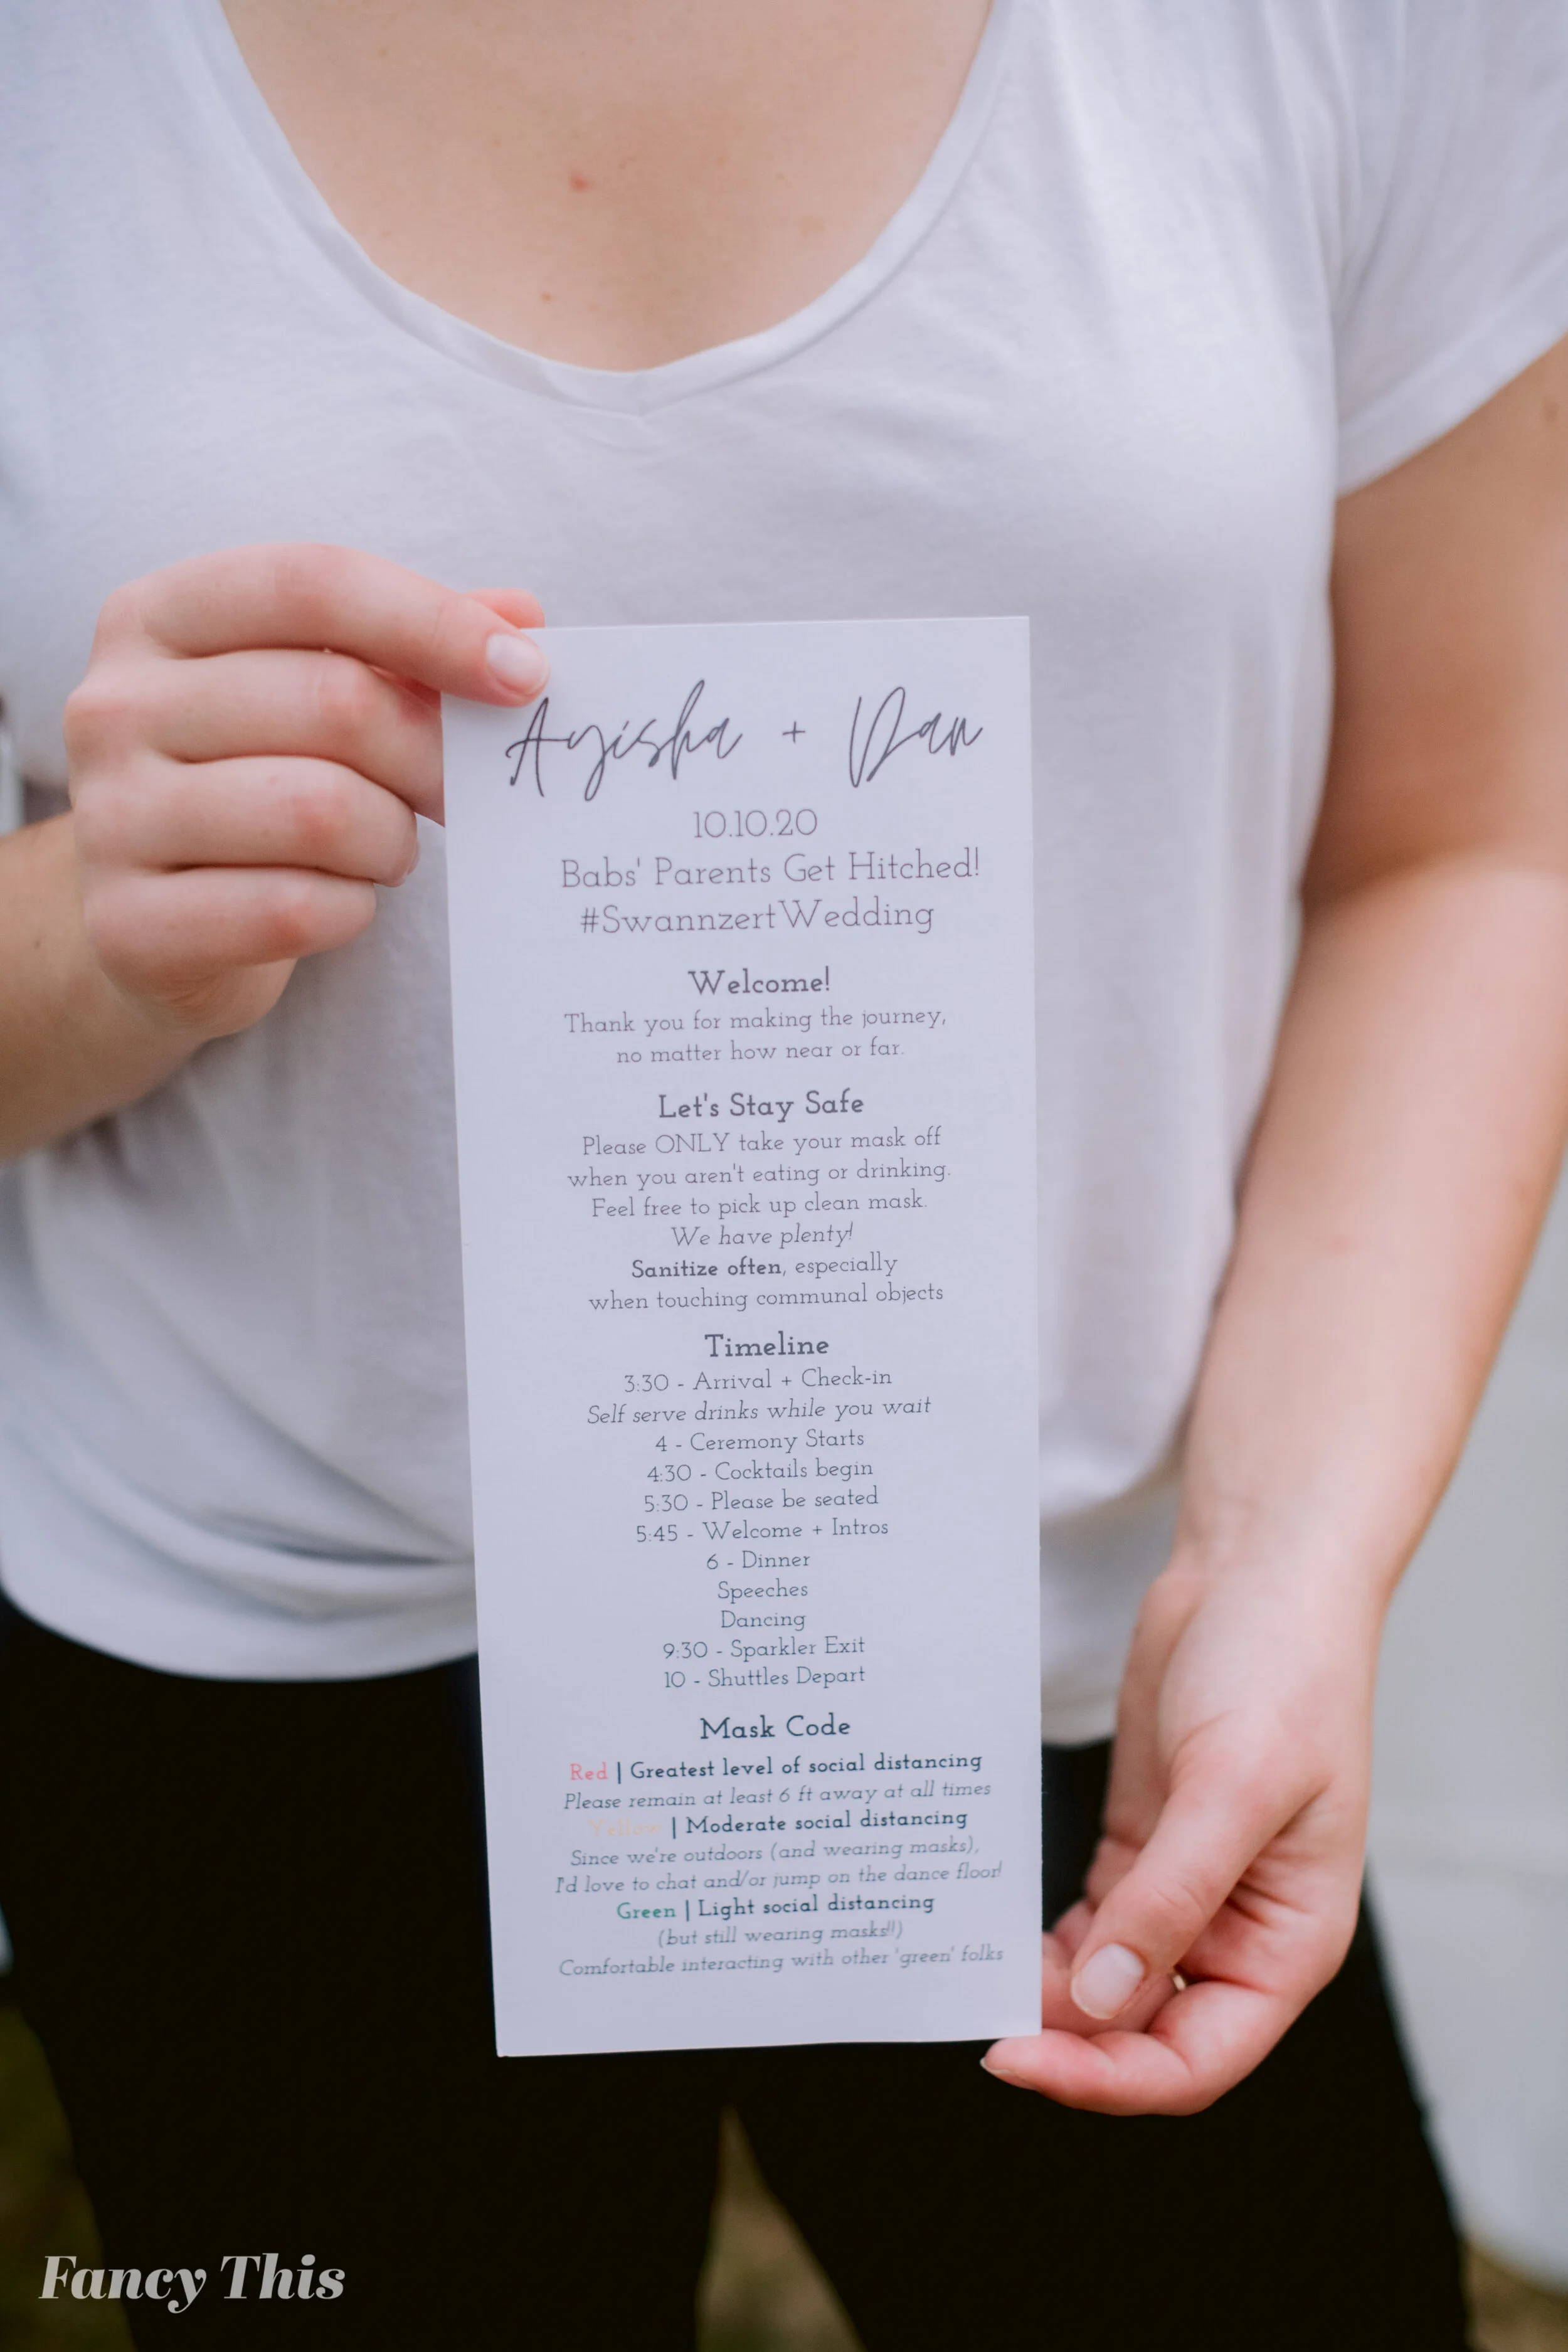 Ayisha + Dan
10.10.20
Babs' Parents Get Hitched!
#SwannzertWedding
Welcome!
Thank you for making the journey,
no matter how near or far.
Let's Stay Safe
Please ONLY take your mask off
when you aren't eating or drinking.
Feel free to pick up clean mask.
We have plenty!
Sanitize often, especially
when touching communal objects
Timeline
3:30 - Arrival + Check-in
Self serve drinks while you wait
4 - Ceremony Starts
4:30 - Cocktails begin
5:30 - Please be seated
5:45 - Welcome + Intros
6 - Dinner
Speeches
Dancing
9:30 - Sparkler Exit
10 - Shuttles Depart
Mask Code
Red | Greatest level of social distancing
Please remain at least 6 ft away at all times
Yellow | Moderate social distancing
Since we're outdoors (and wearing masks),
I'd love to chat and/or jump on the dance floor!
Green | Light social distancing
(but still wearing masks!!)
Comfortable interacting with other 'green' folks
Fancy This